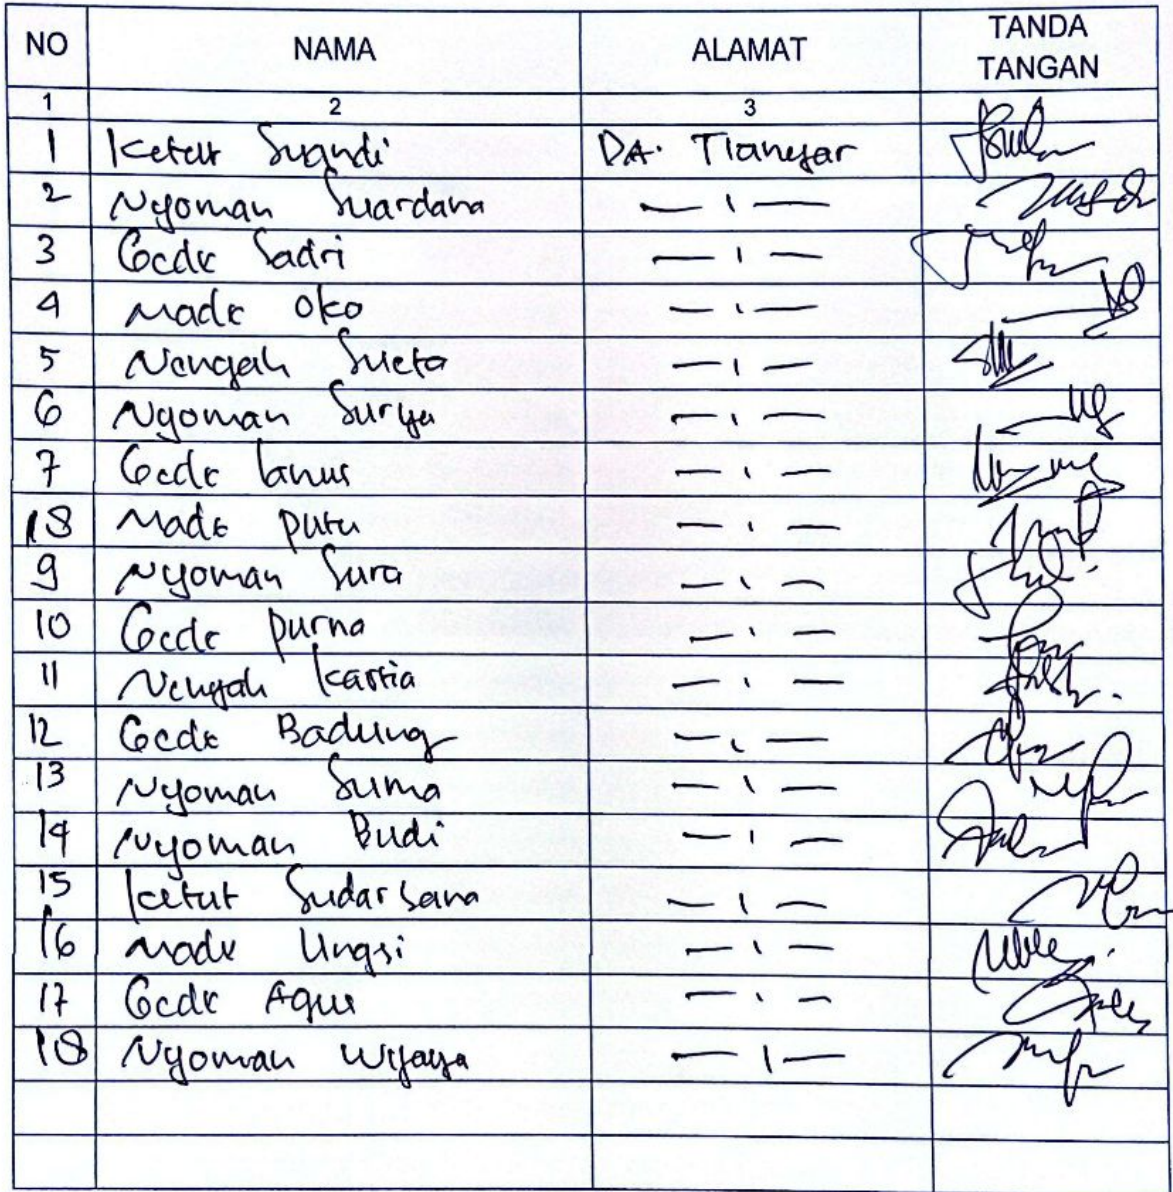 NO NAMA ALAMAT TANDA TANGAN
1 2 3
1 Ketut DA. Tianyar
2 Nyoman Suardana — ı —
3 Gede Sadri — ı —
4 Made Oko — ı —
5 Nengah Sueta — ı —
6 Nyoman Surya — ı —
7 Gede — ı —
18 Made Putu — ı —
9 Nyoman Sura — ı —
10 Gede Purna — ı —
11 Nengah Kartia — ı —
12 Gede Badung — ı —
13 Nyoman Suma — ı —
14 Nyoman Budi — ı —
15 Ketut Sudarsana — ı —
16 Made Ungsi — ı —
17 Gede Agus — ı —
18 Nyoman Wijaya — ı —